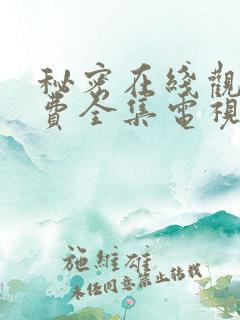 秘密在綫觀
費全集電視
施維雄
未经同意禁止转载